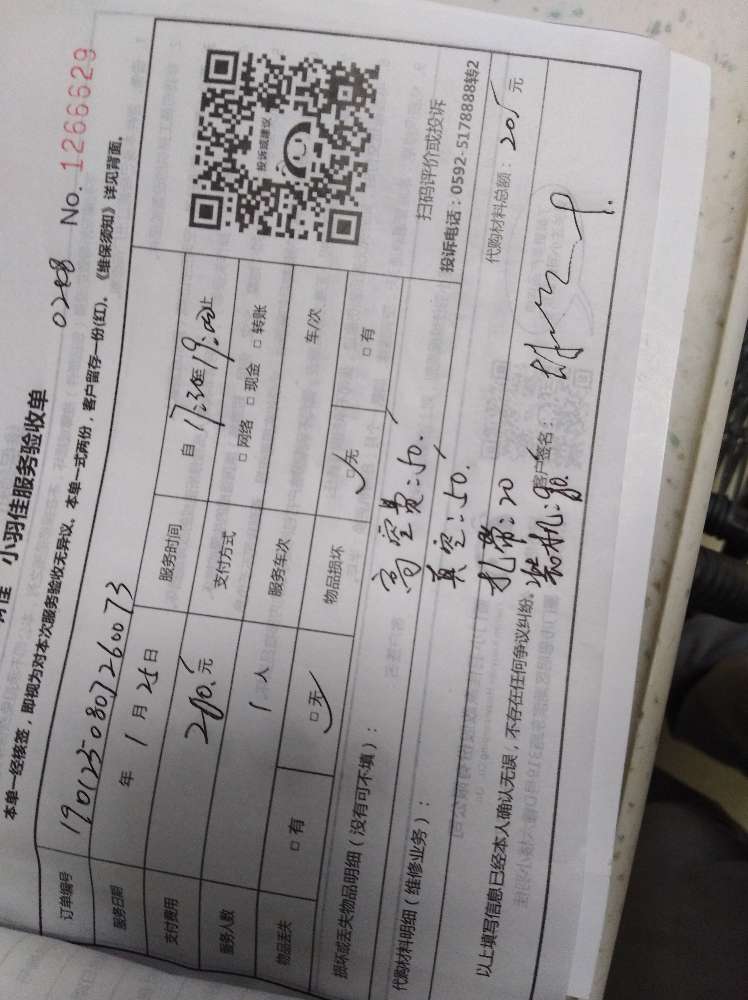 小羽佳服务验收单
0208 No. 1266629
本单一经核签，即视为对本次服务验收无异议。本单一式两份，客户留存一份(红)。《维保须知》详见背面。
订单编号 1901250807260073
服务日期 年 1 月 25 日 服务时间 自 17:30至 19:00止
支付费用 200.元 支付方式 □ 网络 □ 现金 □ 转账
服务人数 1 人 服务车次 车/次
物品丢失 □ 有 □ 无 物品损坏 □ 无 □ 有
投诉或建议
扫码评价或投诉
投诉电话：0592-5178888转2
损坏或丢失物品明细（没有可不填）：
高空费:50.
真空:50.
代购材料明细（维修业务）： 扎带:20 代购材料总额： 205 元
装机:80.
以上填写信息已经本人确认无误，不存在任何争议纠纷。 客户签名：